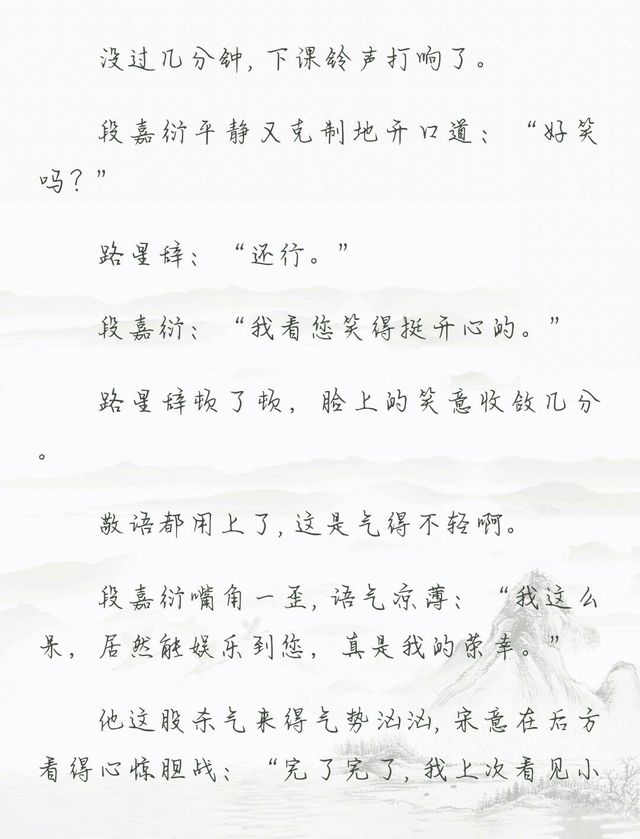 没过几分钟,下课铃声打响了。
段嘉衍平静又克制地开口道：“好笑
吗？”
路星辞：“还行。”
段嘉衍：“我看您笑得挺开心的。”
路星辞顿了顿，脸上的笑意收敛几分
。
敬语都用上了,这是气得不轻啊。
段嘉衍嘴角一歪,语气凉薄：“我这么
呆，居然能娱乐到您，真是我的荣幸。”
他这股杀气来得气势汹汹,宋意在后方
看得心惊胆战：“完了完了,我上次看见小